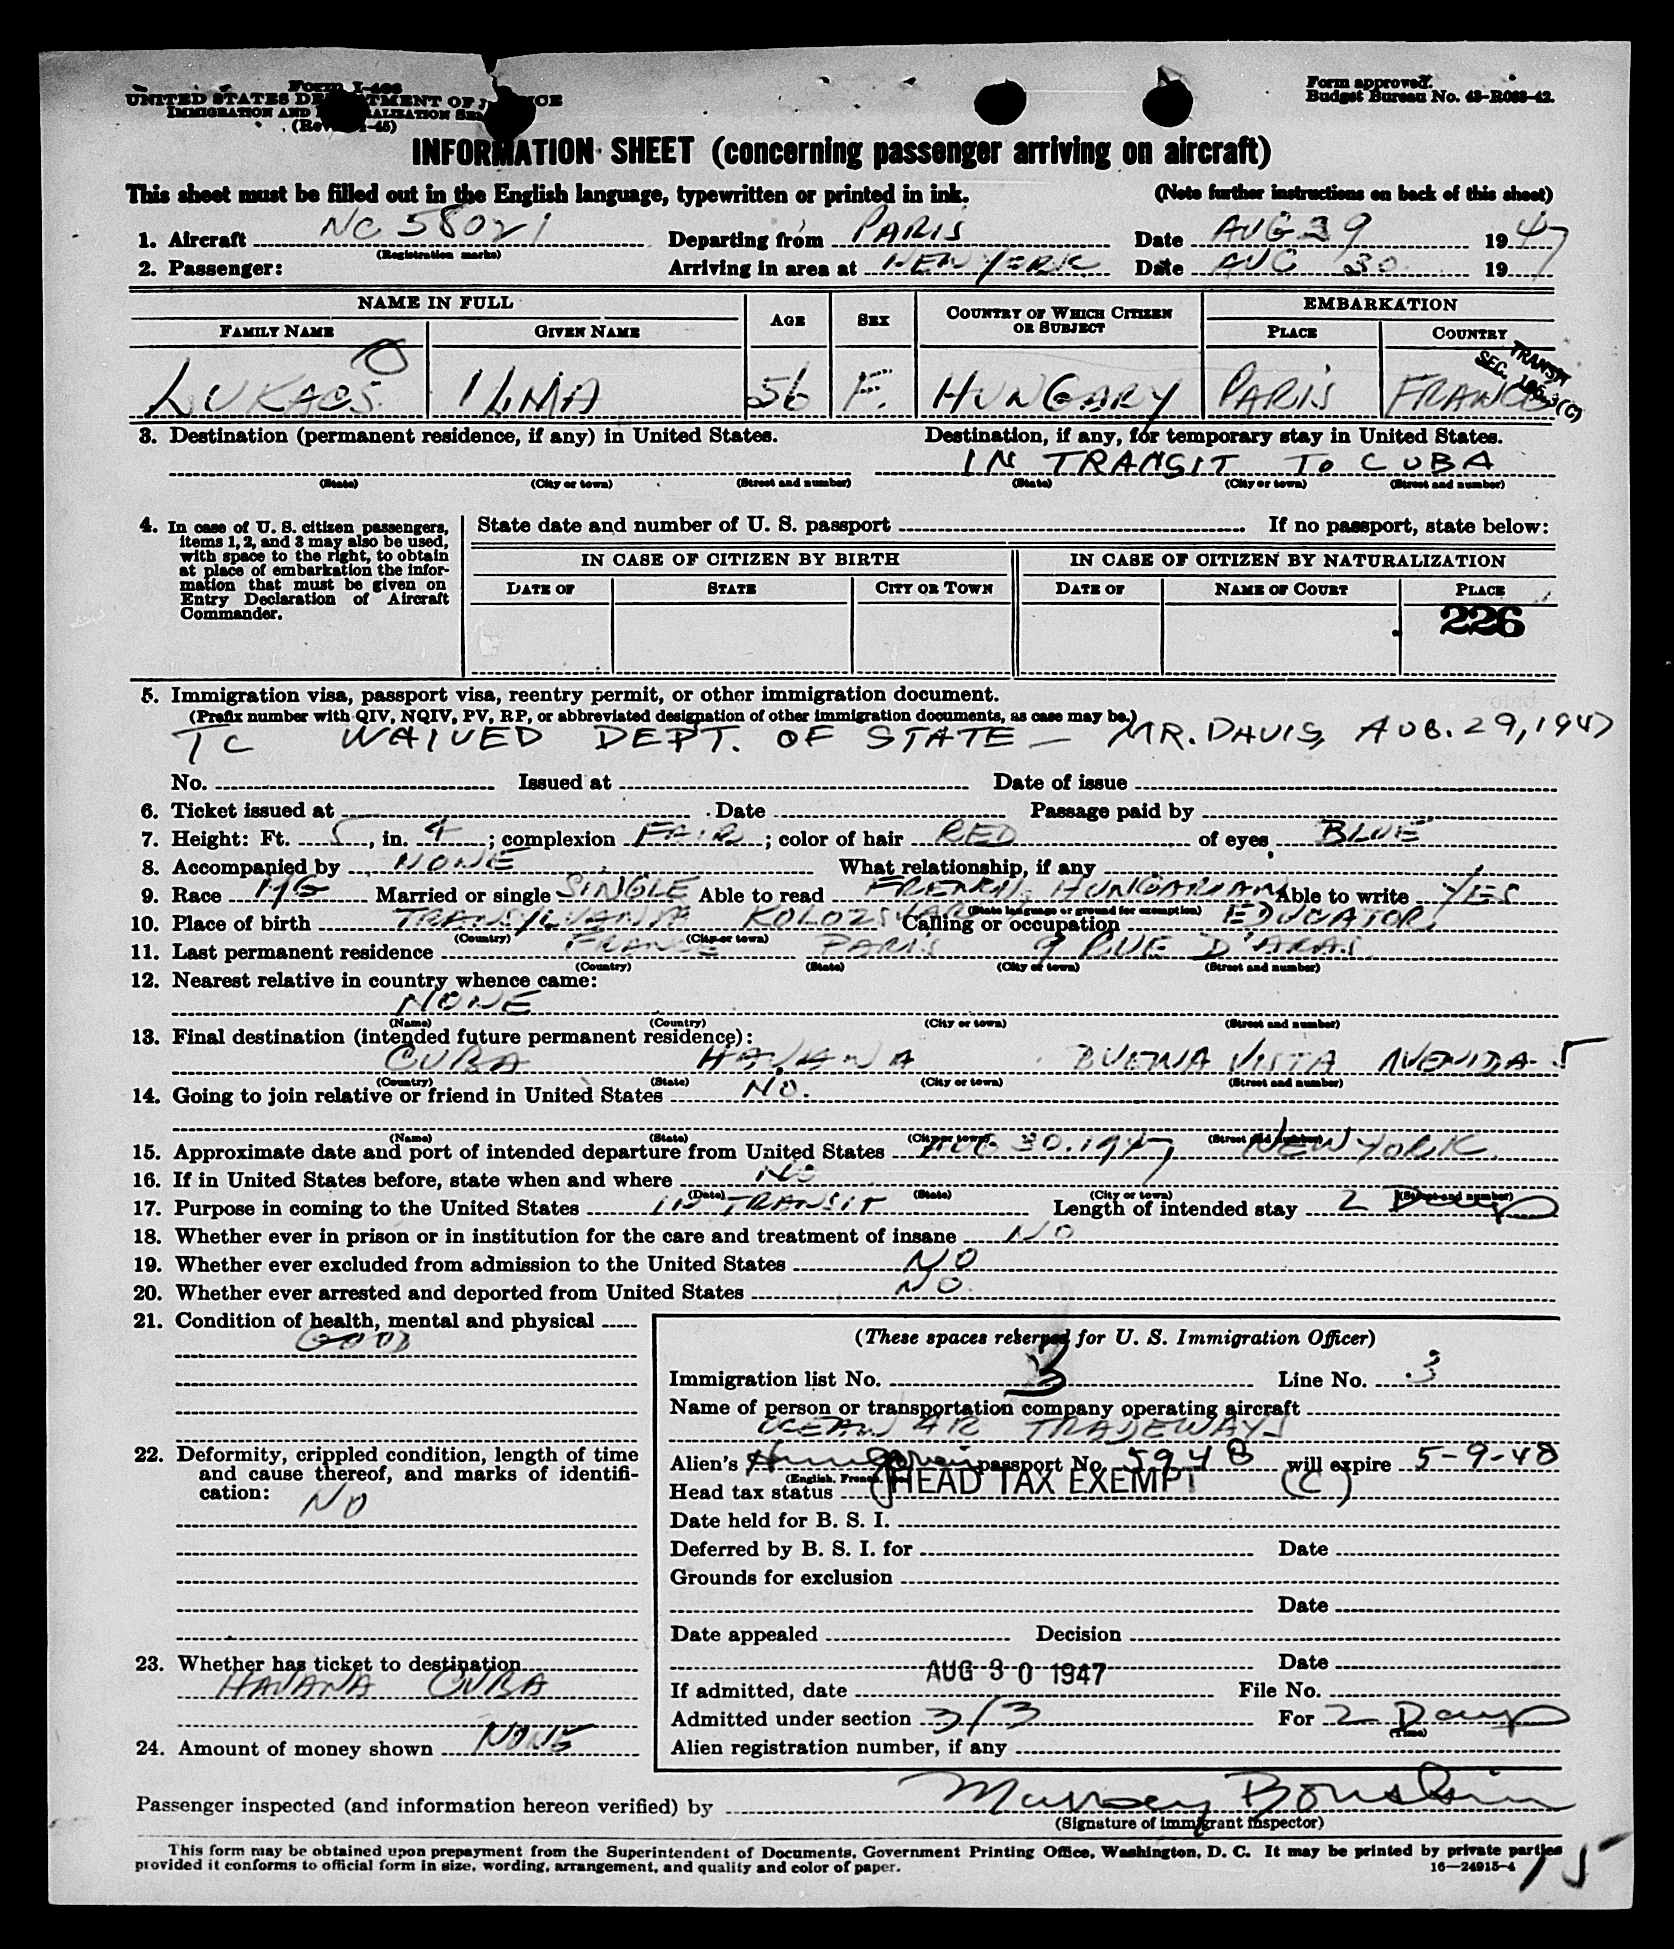 Form I-466
UNITED STATES DEPARTMENT OF JUSTICE
IMMIGRATION AND NATURALIZATION SERVICE
Form approved.
Budget Bureau No. 43-R083-42.
INFORMATION SHEET (concerning passenger arriving on aircraft)
This sheet must be filled out in the English language, typewritten or printed in ink. (Note further instructions on back of this sheet)
1. Aircraft NC 58021 Departing from PARIS Date AUG 29 1947
(Registration marks)
2. Passenger: Arriving in area at NEW YORK Date AUG 30 19
NAME IN FULL AGE SEX COUNTRY OF WHICH CITIZEN OR SUBJECT EMBARKATION
FAMILY NAME GIVEN NAME PLACE COUNTRY
TRANSIT
SEC.
LUKACS ILMA 56 F. HUNGARY PARIS FRANCE
3. Destination (permanent residence, if any) in United States. Destination, if any, for temporary stay in United States.
IN TRANSIT TO CUBA
(State) (City or town) (Street and number) (State) (City or town) (Street and number)
4. In case of U. S. citizen passengers, items 1, 2, and 3 may also be used, with space to the right, to obtain at place of embarkation the information that must be given on Entry Declaration of Aircraft Commander.
State date and number of U. S. passport If no passport, state below:
IN CASE OF CITIZEN BY BIRTH IN CASE OF CITIZEN BY NATURALIZATION
DATE OF STATE CITY OR TOWN DATE OF NAME OF COURT PLACE
226
5. Immigration visa, passport visa, reentry permit, or other immigration document.
(Prefix number with QIV, NQIV, PV, RP, or abbreviated designation of other immigration documents, as case may be.)
TC WAIVED DEPT. OF STATE — MR. DAVIS, AUG. 29, 1947
No. Issued at Date of issue
6. Ticket issued at Date Passage paid by
7. Height: Ft. 5, in. 4; complexion FAIR; color of hair RED of eyes BLUE
8. Accompanied by NONE What relationship, if any
9. Race MG Married or single SINGLE Able to read FRENCH, HUNGARIAN Able to write YES
(State language or ground for exemption)
10. Place of birth TRANSYLVANIA KOLOZSVAR Calling or occupation EDUCATOR
(Country) (City or town)
11. Last permanent residence FRANCE PARIS 9 RUE D'ARAS
(Country) (State) (City or town) (Street and number)
12. Nearest relative in country whence came:
NONE
(Name) (Country) (City or town) (Street and number)
13. Final destination (intended future permanent residence):
CUBA HAVANA BUENA VISTA AVENIDA 5
(Country) (State) (City or town) (Street and number)
14. Going to join relative or friend in United States NO.
(Name) (State) (City or town) (Street and number)
15. Approximate date and port of intended departure from United States AUG 30. 1947 NEW YORK.
16. If in United States before, state when and where NO
(Date) (State) (City or town) (Street and number)
17. Purpose in coming to the United States IN TRANSIT Length of intended stay 2 Days
18. Whether ever in prison or in institution for the care and treatment of insane NO
19. Whether ever excluded from admission to the United States NO
20. Whether ever arrested and deported from United States NO.
21. Condition of health, mental and physical
GOOD
(These spaces reserved for U. S. Immigration Officer)
Immigration list No. 3 Line No. 3
Name of person or transportation company operating aircraft
OCEAN AIR TRADEWAYS
22. Deformity, crippled condition, length of time and cause thereof, and marks of identification:
NO
Alien's Hungarian passport No. 5948 will expire 5-9-48
Head tax status HEAD TAX EXEMPT (C)
Date held for B. S. I.
Deferred by B. S. I. for Date
Grounds for exclusion
Date
Date appealed Decision
23. Whether has ticket to destination
HAVANA CUBA
Date
AUG 30 1947
If admitted, date File No.
Admitted under section 3/3 For 2 Days
(Time)
24. Amount of money shown NONE
Alien registration number, if any
Passenger inspected (and information hereon verified) by
(Signature of immigrant inspector)
This form may be obtained upon prepayment from the Superintendent of Documents, Government Printing Office, Washington, D. C. It may be printed by private parties
provided it conforms to official form in size, wording, arrangement, and quality and color of paper. 16—24915-4
15